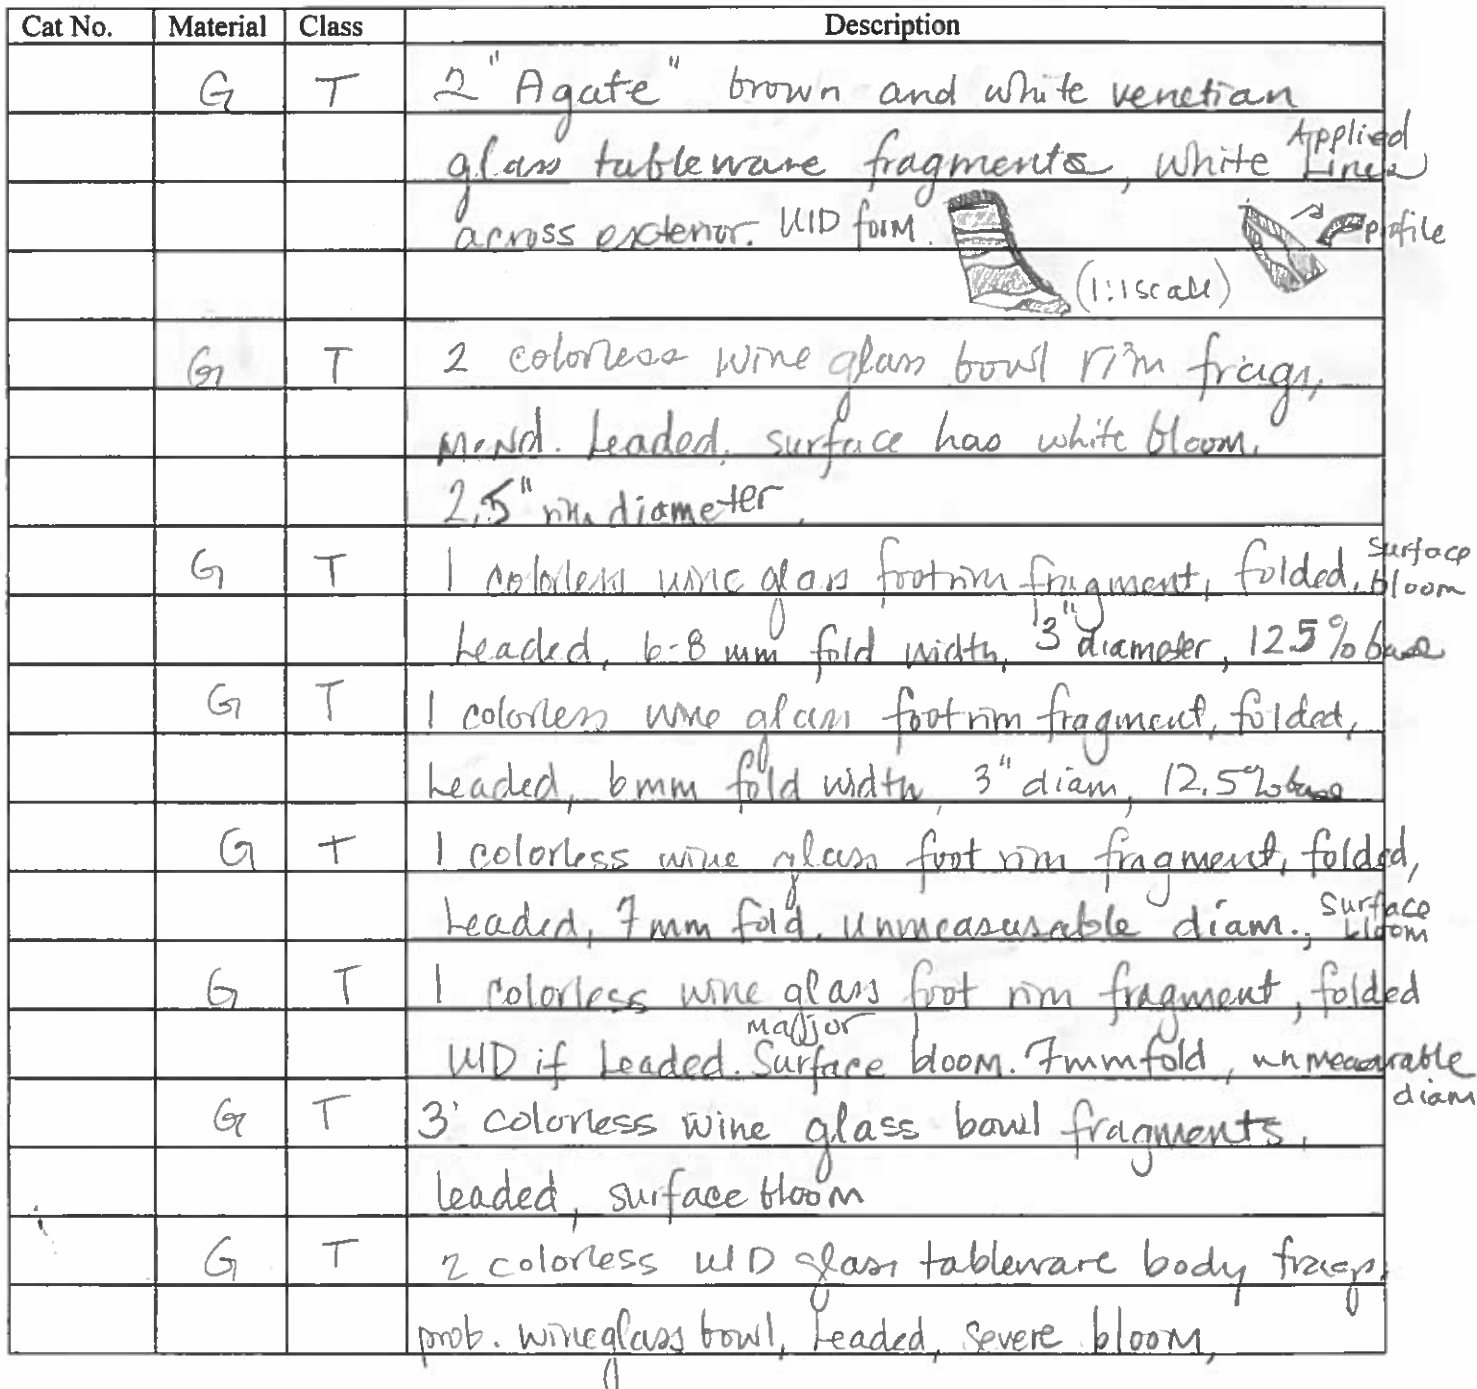 Cat No. Material Class Description
G T 2 "Agate" brown and white venetian
glass tableware fragments, white Applied Lines
across exterior. UID form. profile
(1:1 scale)
G T 2 colorless wine glass bowl rim frags,
mend. Leaded. surface has white bloom.
2.5" rim diameter.
G T 1 colorless wine glass footrim fragment, folded, surface bloom
Leaded, 6-8 mm fold width, 3" diameter, 12.5% base
G T 1 colorless wine glass footrim fragment, folded,
Leaded, 6mm fold width, 3" diam, 12.5% base
G T 1 colorless wine glass foot rim fragment, folded,
Leaded, 7mm fold, unmeasurable diam., Surface bloom
G T 1 colorless wine glass foot rim fragment, folded
UID if Leaded. major Surface bloom. 7mm fold, unmeasurable diam
G T 3 colorless wine glass bowl fragments,
leaded, surface bloom
G T 2 colorless UID glass tableware body frags,
prob. wineglass bowl, Leaded, severe bloom,